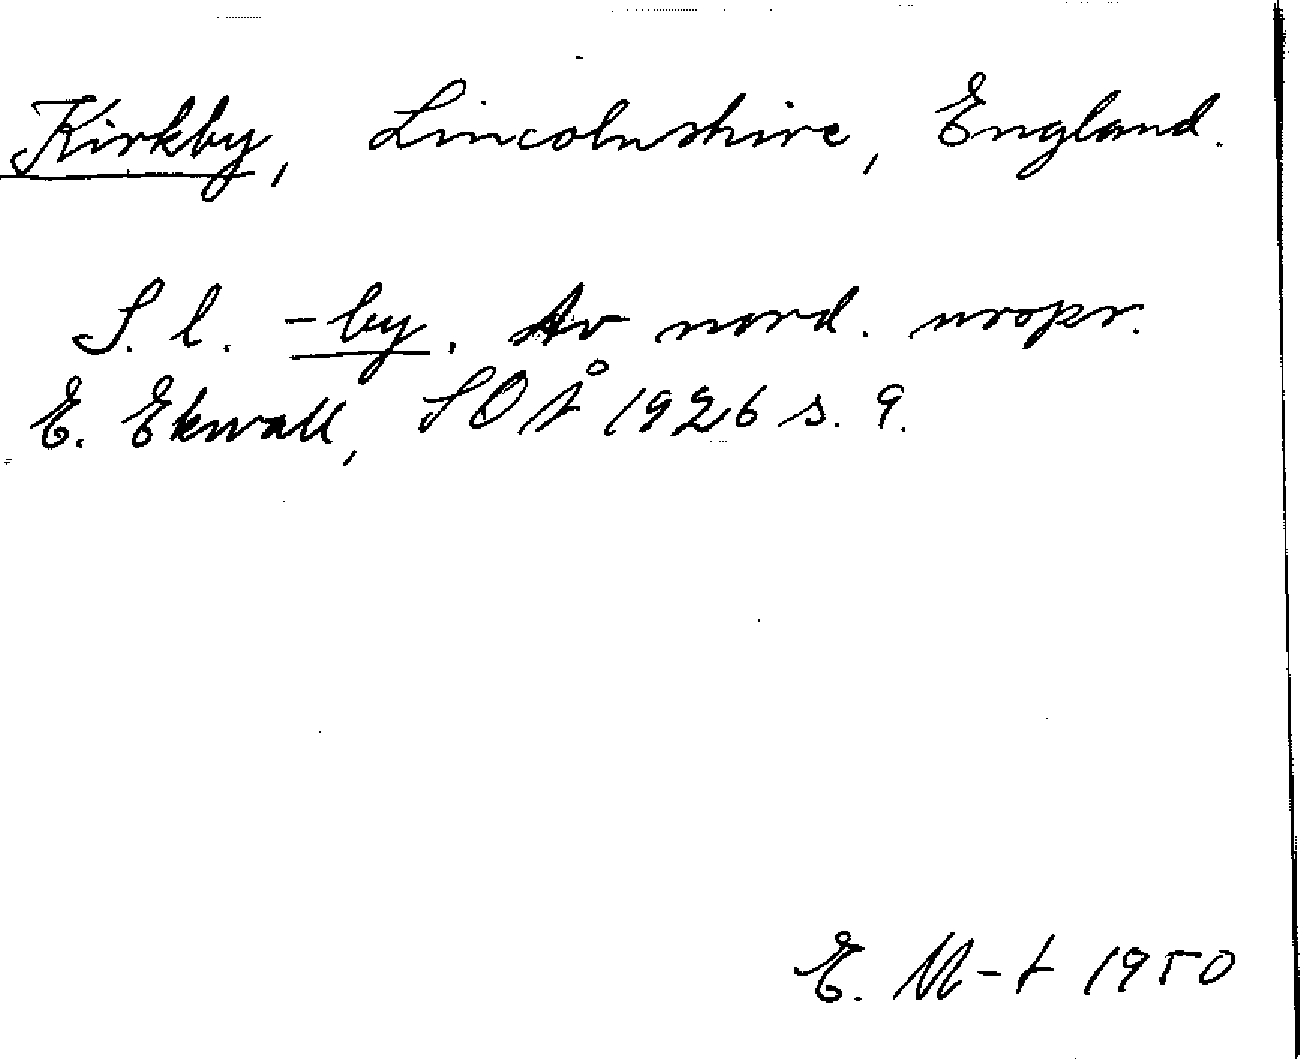 Kirkby, Lincolnshire, England.
S. l. -by. Av nord. urspr.
E. Ekwall, SOÅ 1926 s. 9.
E. M-t 1950